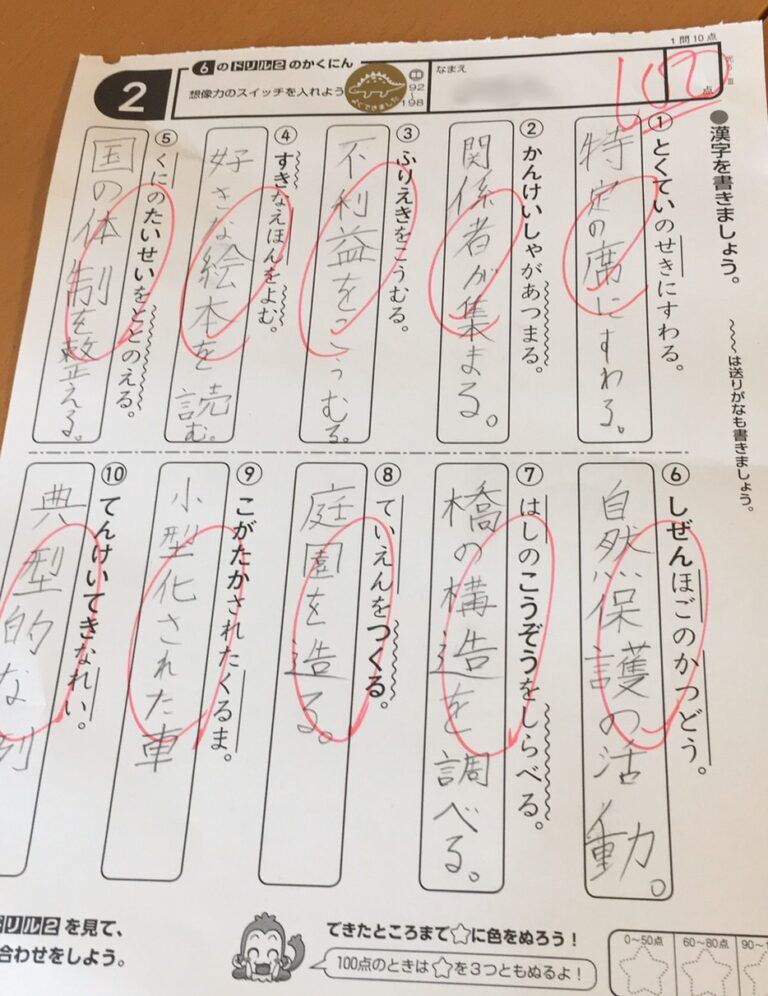 1問10点
2
6のドリル2のかくにん
想像力のスイッチを入れよう
よくできました
92〜198
なまえ
100点
●漢字を書きましょう。
〰は送りがなも書きましょう。
①とくていのせきにすわる。
特定の席にすわる。
②かんけいしゃがあつまる。
関係者が集まる。
③ふりえきをこうむる。
不利益をこうむる。
④すきなえほんをよむ。
好きな絵本を読む。
⑤くにのたいせいをととのえる。
国の体制を整える。
⑥しぜんほごのかつどう。
自然保護の活動。
⑦はしのこうぞうをしらべる。
橋の構造を調べる。
⑧ていえんをつくる。
庭園を造る。
⑨こがたかされたくるま。
小型化された車
⑩てんけいてきなれい。
典型的な列
ドリル2を見て、
合わせをしよう。
できたところまで☆に色をぬろう！
100点のときは☆を3つともぬるよ！
0〜50点
60〜80点
90〜1